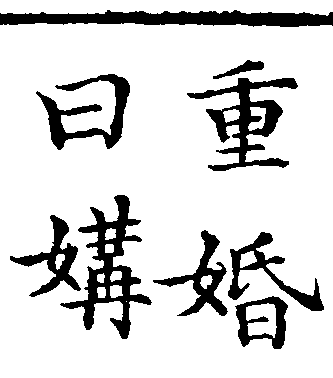 重婚
曰媾